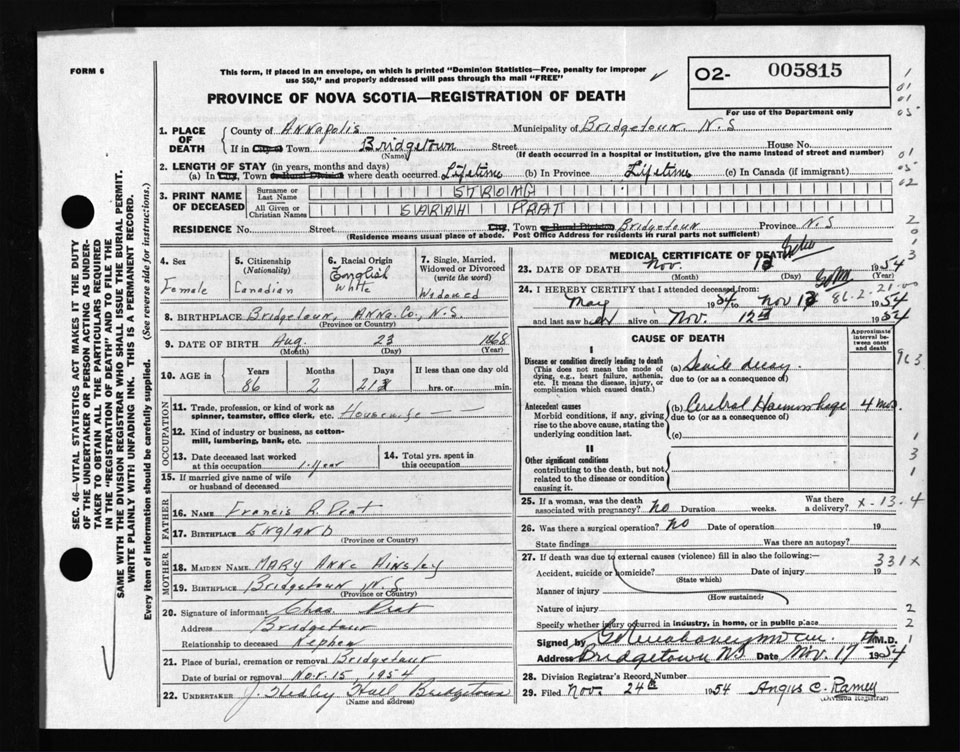 FORM 6
This form, if placed in an envelope, on which is printed "Dominion Statistics—Free, penalty for improper
use $50," and properly addressed will pass through the mail "FREE"
02- 005815
For use of the Department only
PROVINCE OF NOVA SCOTIA—REGISTRATION OF DEATH
1. PLACE OF DEATH
County of Annapolis Municipality of Bridgetown. N.S
If in City or Town Bridgetown Street House No.
(Name) (If death occurred in a hospital or institution, give the name instead of street and number)
2. LENGTH OF STAY (in years, months and days)
(a) In City, Town or Rural Division where death occurred Lifetime (b) In Province Lifetime (c) In Canada (if immigrant)
3. PRINT NAME OF DECEASED
Surname or Last Name STRONG
All Given or Christian Names SARAH PRAT
RESIDENCE No. Street City, Town or Rural Division Bridgetown Province N.S
(Residence means usual place of abode. Post Office Address for residents in rural parts not sufficient)
4. Sex
Female
5. Citizenship
(Nationality)
Canadian
6. Racial Origin
English
White
7. Single, Married,
Widowed or Divorced
(write the word)
Widowed
8. BIRTHPLACE Bridgetown, Anna. Co., N.S.
(Province or Country)
9. DATE OF BIRTH Aug. 23 1868
(Month) (Day) (Year)
10. AGE in
Years Months Days If less than one day old
86 2 21 hrs. or min.
OCCUPATION
11. Trade, profession, or kind of work as
spinner, teamster, office clerk, etc. Housewife
12. Kind of industry or business, as cotton-
mill, lumbering, bank, etc.
13. Date deceased last worked
at this occupation 1-year
14. Total yrs. spent in
this occupation
15. If married give name of wife
or husband of deceased
FATHER
16. NAME Francis R. Prat
17. BIRTHPLACE ENGLAND
(Province or Country)
MOTHER
18. MAIDEN NAME MARY ANNE AINSLEY
19. BIRTHPLACE Bridgetown N.S.
(Province or Country)
20. Signature of informant Chas Prat
Address Bridgetown
Relationship to deceased Nephew
21. Place of burial, cremation or removal Bridgetown
Date of burial or removal Nov. 15, 1954
22. UNDERTAKER J. Hedley Hall Bridgetown
(Name and address)
MEDICAL CERTIFICATE OF DEATH
23. DATE OF DEATH Nov. 1954
(Month) (Day)
24. I HEREBY CERTIFY that I attended deceased from:
May 1954 to Nov 1954
86.2.21.00
and last saw her alive on Nov. 12th 1954
CAUSE OF DEATH
Approximate
interval be-
tween onset
and death
I
Disease or condition directly leading to death
(This does not mean the mode of
dying, e.g., heart failure, asthenia,
etc. It means the disease, injury, or
complication which caused death.)
(a) Senile decay.
due to (or as a consequence of)
Antecedent causes
Morbid conditions, if any, giving
rise to the above cause, stating the
underlying condition last.
(b) Cerebral Haemorrhage 4 mos
due to (or as a consequence of)
(c)
II
Other significant conditions
contributing to the death, but not
related to the disease or condition
causing it.
25. If a woman, was the death
associated with pregnancy? No Duration weeks. Was there
a delivery? x-13.4
26. Was there a surgical operation? No Date of operation 19
State findings Was there an autopsy?
27. If death was due to external causes (violence) fill in also the following:—
331x
Accident, suicide or homicide? Date of injury 19
(State which)
Manner of injury
(How sustained)
Nature of injury
Specify whether injury occurred in industry, in home, or in public place
Signed by M.D.
Address Bridgetown NS Date Nov. 17 1954
28. Division Registrar's Record Number
29. Filed Nov. 24th 1954 Angus C. Ramey
(Division Registrar)
SEC. 46—VITAL STATISTICS ACT MAKES IT THE DUTY
OF THE UNDERTAKER OR PERSON ACTING AS UNDER-
TAKER TO OBTAIN ALL THE PARTICULARS REQUIRED
IN THE "REGISTRATION OF DEATH" AND TO FILE THE
SAME WITH THE DIVISION REGISTRAR WHO SHALL ISSUE THE BURIAL PERMIT.
WRITE PLAINLY WITH UNFADING INK. THIS IS A PERMANENT RECORD.
Every item of information should be carefully supplied. (See reverse side for instructions.)
1
01
01
05
01
05
02
2
0
1
3
963
1
3
1
2
2
1